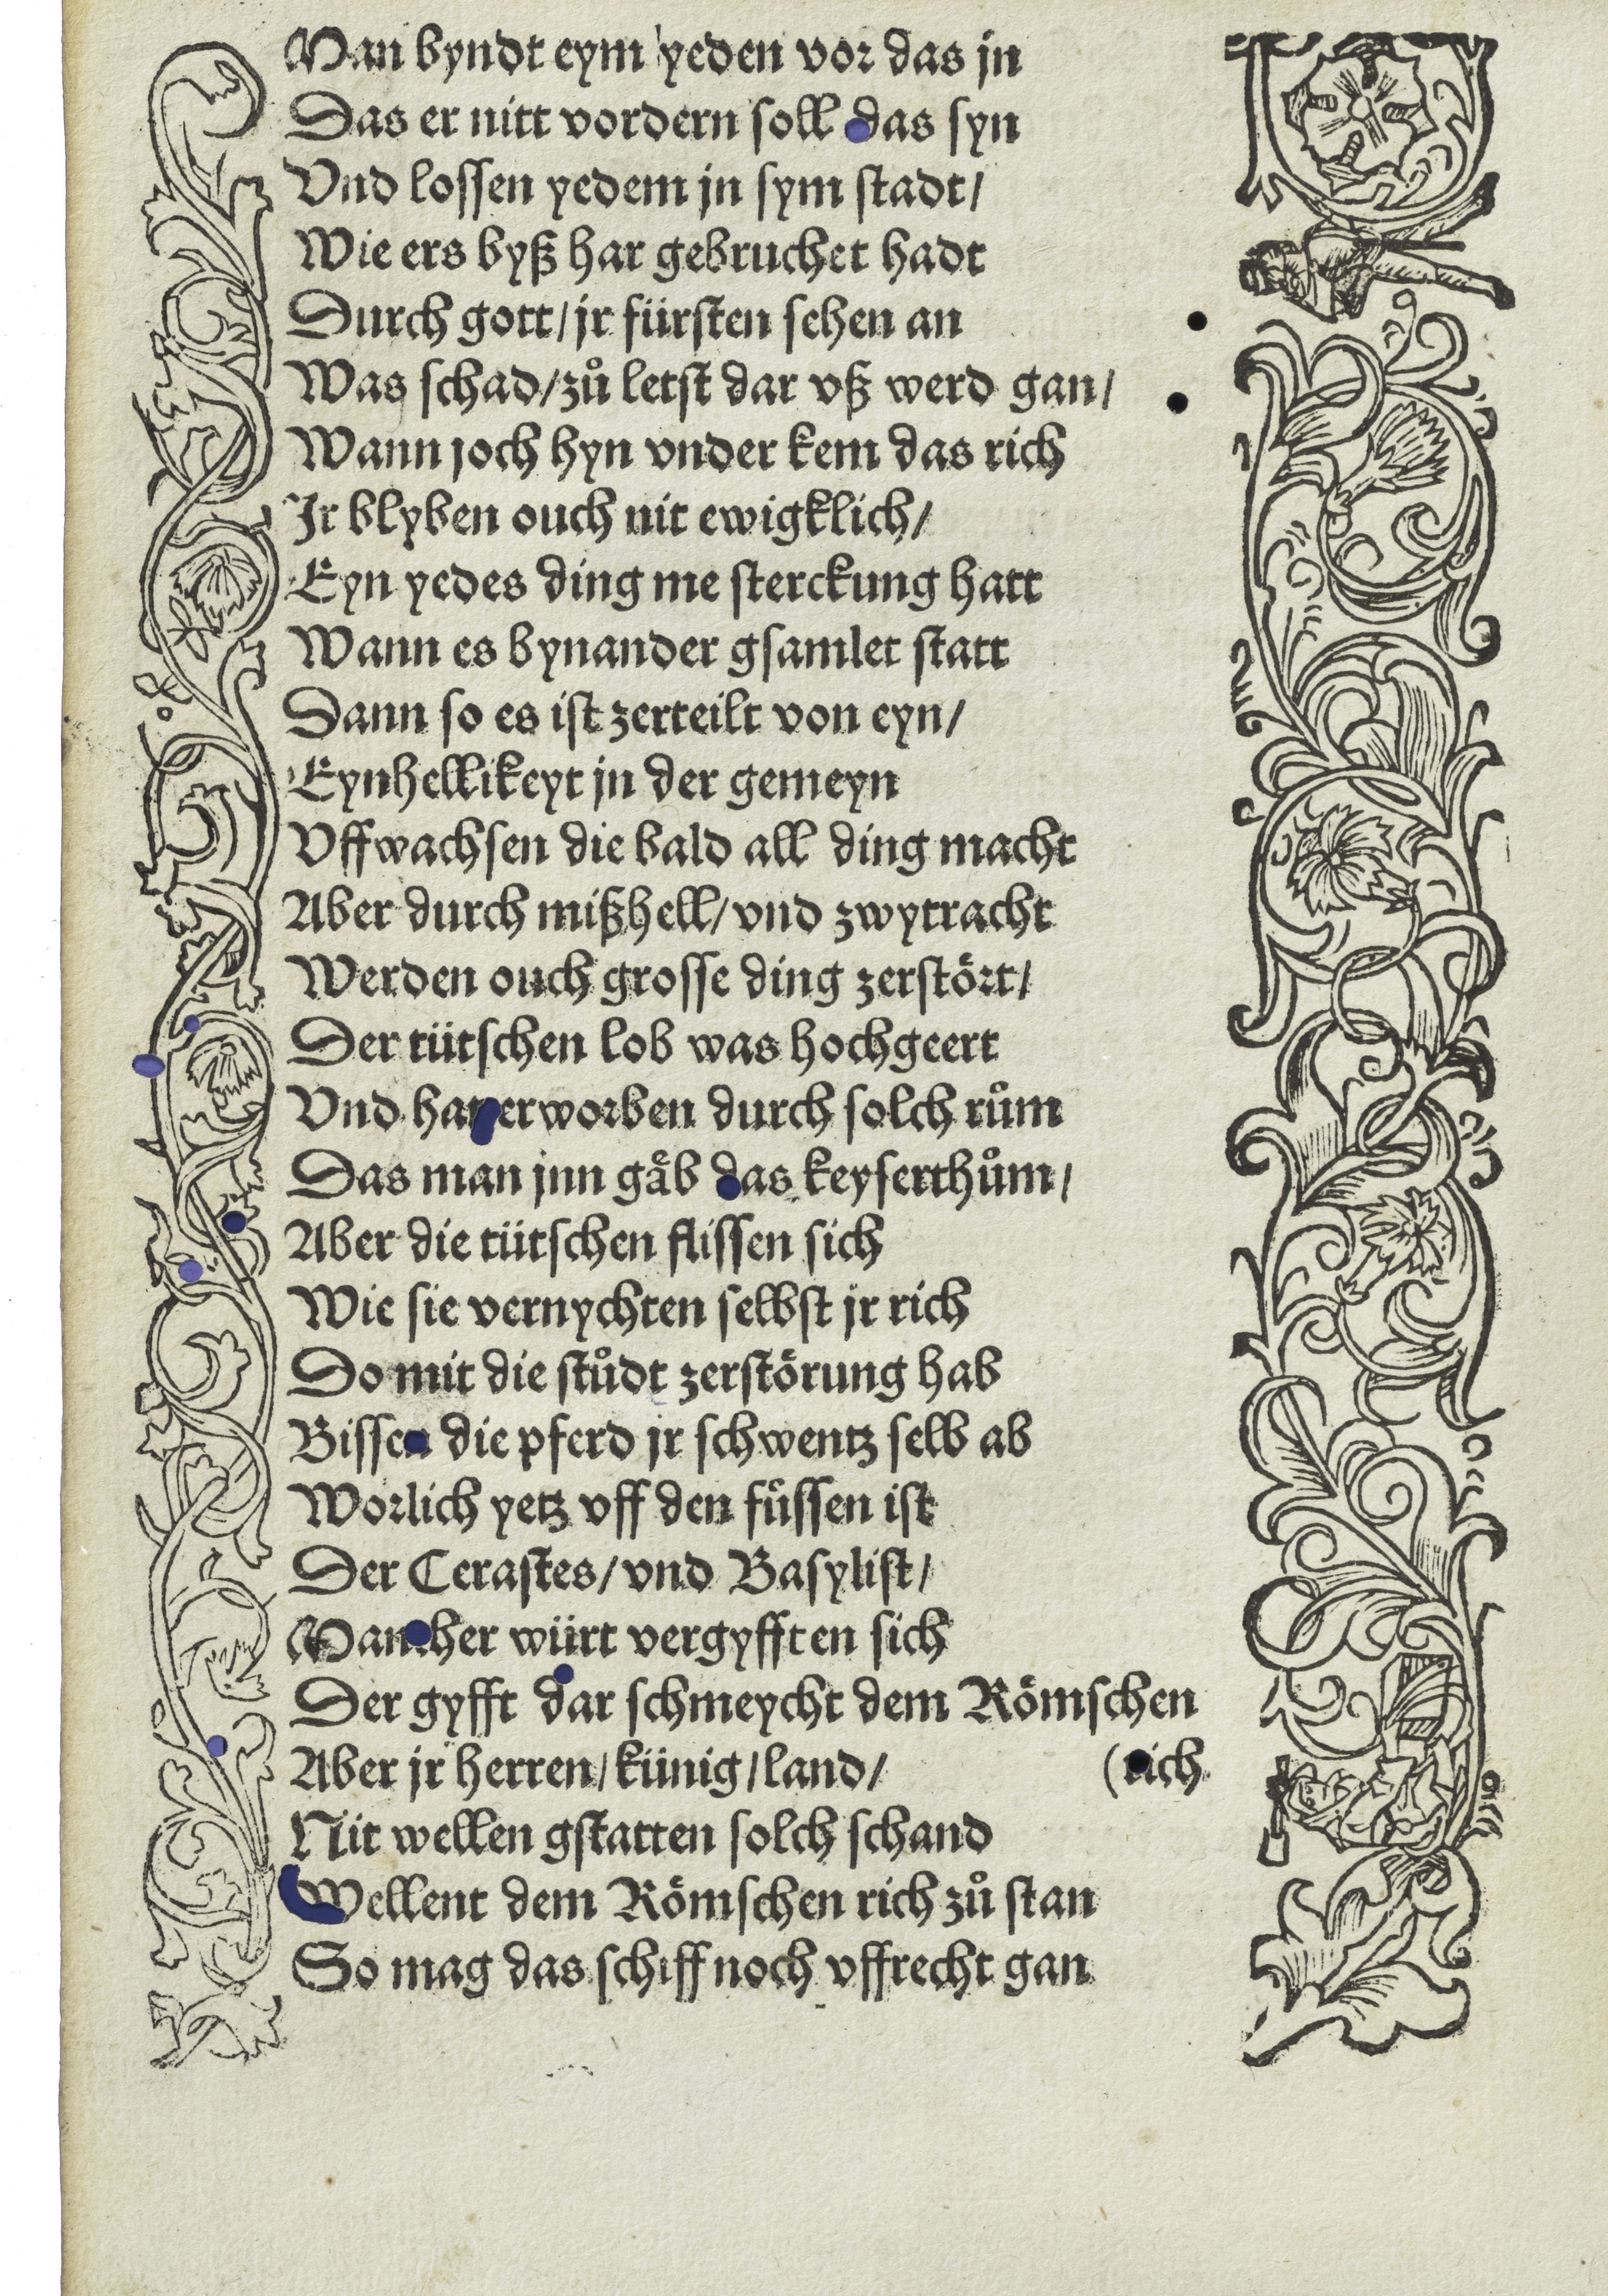 Man byndt eym yeden vor das jn
Das er nitt vordern soll das syn
Vnd lossen yedem jn sym stadt/
Wie ers byß har gebruchet hadt
Durch gott/jr fürsten sehen an
Was schad/zů letst dar vß werd gan/
Wann joch hyn vnder kem das rich
Jr blyben ouch nit ewigklich/
Eyn yedes ding me sterckung hatt
Wann es bynander gsamlet statt
Dann so es ist zerteilt von eyn/
Eynhellikeyt jn der gemeyn
Vffwachsen die bald all ding macht
Aber durch mißhell/vnd zwytracht
Werden ouch grosse ding zerstört/
Der tütschen lob was hochgeert
Vnd hatt erworben durch solch rům
Das man jnn gåb das keyserthům/
Aber die tütschen flissen sich
Wie sie vernychten selbst jr rich
Do mit die stůdt zerstörung hab
Bissen die pferd jr schwentz selb ab
Worlich yetz vff den füssen ist
Der Cerastes/vnd Basylist/
Mancher würt vergyfften sich
Der gyfft dar schmeycht dem Römschen
Aber jr herren/künig/land/ (rich
Nit wellen gstatten solch schand
Wellent dem Römschen rich zů stan
So mag das schiff noch vffrecht gan